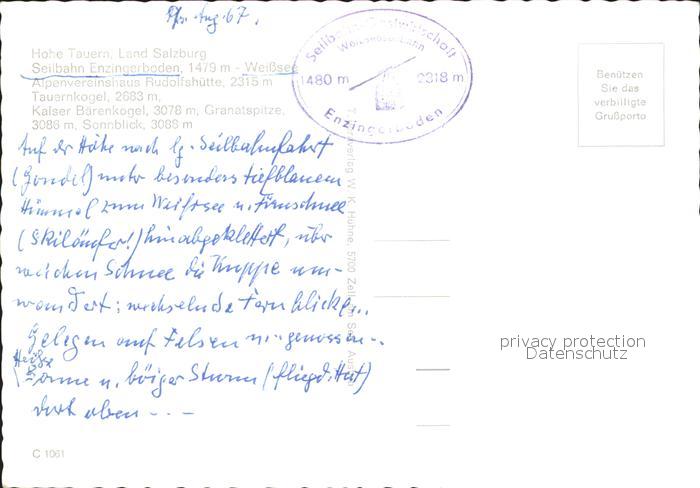 Aug. 67.
Hohe Tauern, Land Salzburg
Seilbahn Enzingerboden, 1479 m - Weißsee
Alpenvereinshaus Rudolfshütte, 2315 m
Tauernkogel, 2683 m,
Kaiser Bärenkogel, 3078 m, Granatspitze,
3086 m, Sonnblick, 3088 m
Seilbahn-Gastwirtschaft
Weißsee-Bahn
1480 m 2318 m
Enzingerboden
Benützen
Sie das
verbilligte
Grußporto
Auf der Höhe nach lg. Seilbahnfahrt
(Gondel) unter besonders tiefblauem
Himmel zum Weißsee u. Firnschnee
(Skiläufer!) hinabgeklettert, über
weichen Schnee die Kuppe um-
wandert; wechselnde Fernblicke..
Gelegen auf Felsen u. genossen..
Heiße
Sonne u. böiger Sturm (fliegd. Hut)
dort oben - - -
verlag W. K. Hühne, 5700 Zell am See
privacy protection
Datenschutz
C 1061